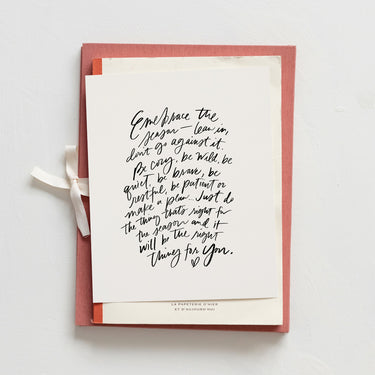 Embrace the
season — lean in,
don't go against it.
Be cozy, be wild, be
quiet, be brave, be
restful, be patient or
make a plan. Just do
the thing that's right for
the season and it
will be the right
thing for you.
LA PAPETERIE D'HIER
ET D'AUJOURD'HUI